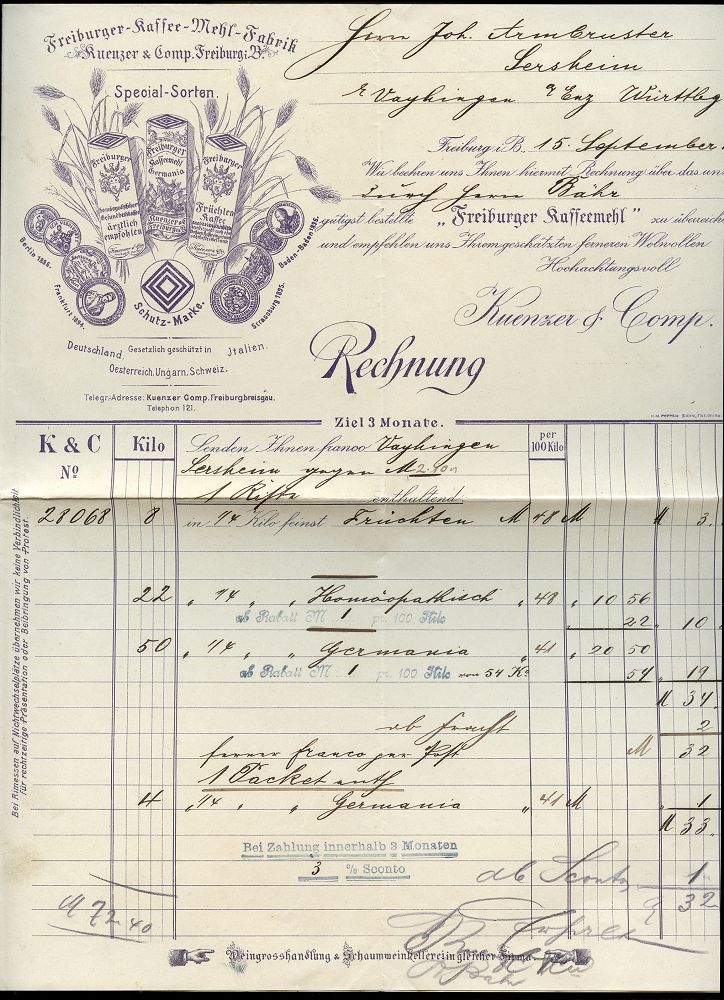 Freiburger-Kaffee-Mehl-Fabrik
Kuenzer & Comp. Freiburg i/B.
Special-Sorten.
Freiburger
ärztlich
empfohlen
Freiburger
Kaffeemehl
Germania
Kuenzer &
Freiburg i/B.
Freiburger
Früchten
Kaffee
Berlin 1886.
Frankfurt 1894.
Schutz-Marke.
Strassburg 1895.
Baden-Baden 1896.
Deutschland, Gesetzlich geschützt in Jtalien.
Oesterreich, Ungarn, Schweiz.
Telegr.-Adresse: Kuenzer Comp. Freiburgbreisgau.
Telephon 121.
Herrn Joh. Armbruster
Sersheim
Vayhingen a/ Enz Württbg
Freiburg i/B. 15. September.
Wir beehren uns Ihnen hiermit Rechnung über das un
durch Herrn Bähr
gütigst bestellte „Freiburger Kaffeemehl" zu überreich
und empfehlen uns Ihrem geschätzten ferneren Wolvollen
Hochachtungsvoll
Kuenzer & Comp.
Rechnung
Ziel 3 Monate.
K & C Kilo Senden Ihnen franco Vayhingen per
No 100 Kilo
Sersheim gegen M
1 Kiste enthaltend:
28068 8 in 1/4 Kilo feinst Früchten M 48 M M 3.
22 „ 1/4 „ „ Homöopathisch „ 48 „ 10 56
ab Rabatt M 1 pr. 100 Kilo 22 „ 10
50 „ 1/4 „ „ Germania „ 41 „ 20 50
ab Rabatt M 1 pr. 100 Kilo von 54 Ko 54 „ 19
M 34.
ab Fracht 2
ferner franco per Post M 32
1 Packet enth
4 „ 1/4 „ „ Germania „ 41 M „ 1
M 33.
Bei Zahlung innerhalb 3 Monaten
3 % Sconto
ab Sconto 1
32
M 72 40
Bähr
Weingrosshandlung & Schaumweinkellerei in gleicher Firma.
Bei Rimessen auf Nichtwechselplätze übernehmen wir keine Verbindlichkeit
für rechtzeitige Präsentation oder Beibringung von Protest.